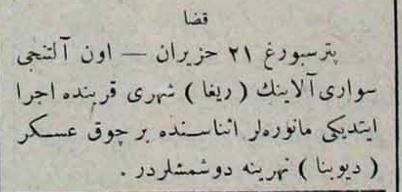 قضا
پترسبورغ ٢١ حزيران — اون آلتنجى
سوارى آلاينك ( ريغا ) شهرى قربنده اجرا
ايتديكى مانوره‌لر اثناسنده بر چوق عسكر
( ديوبنا ) نهرينه دوشمشلردر .